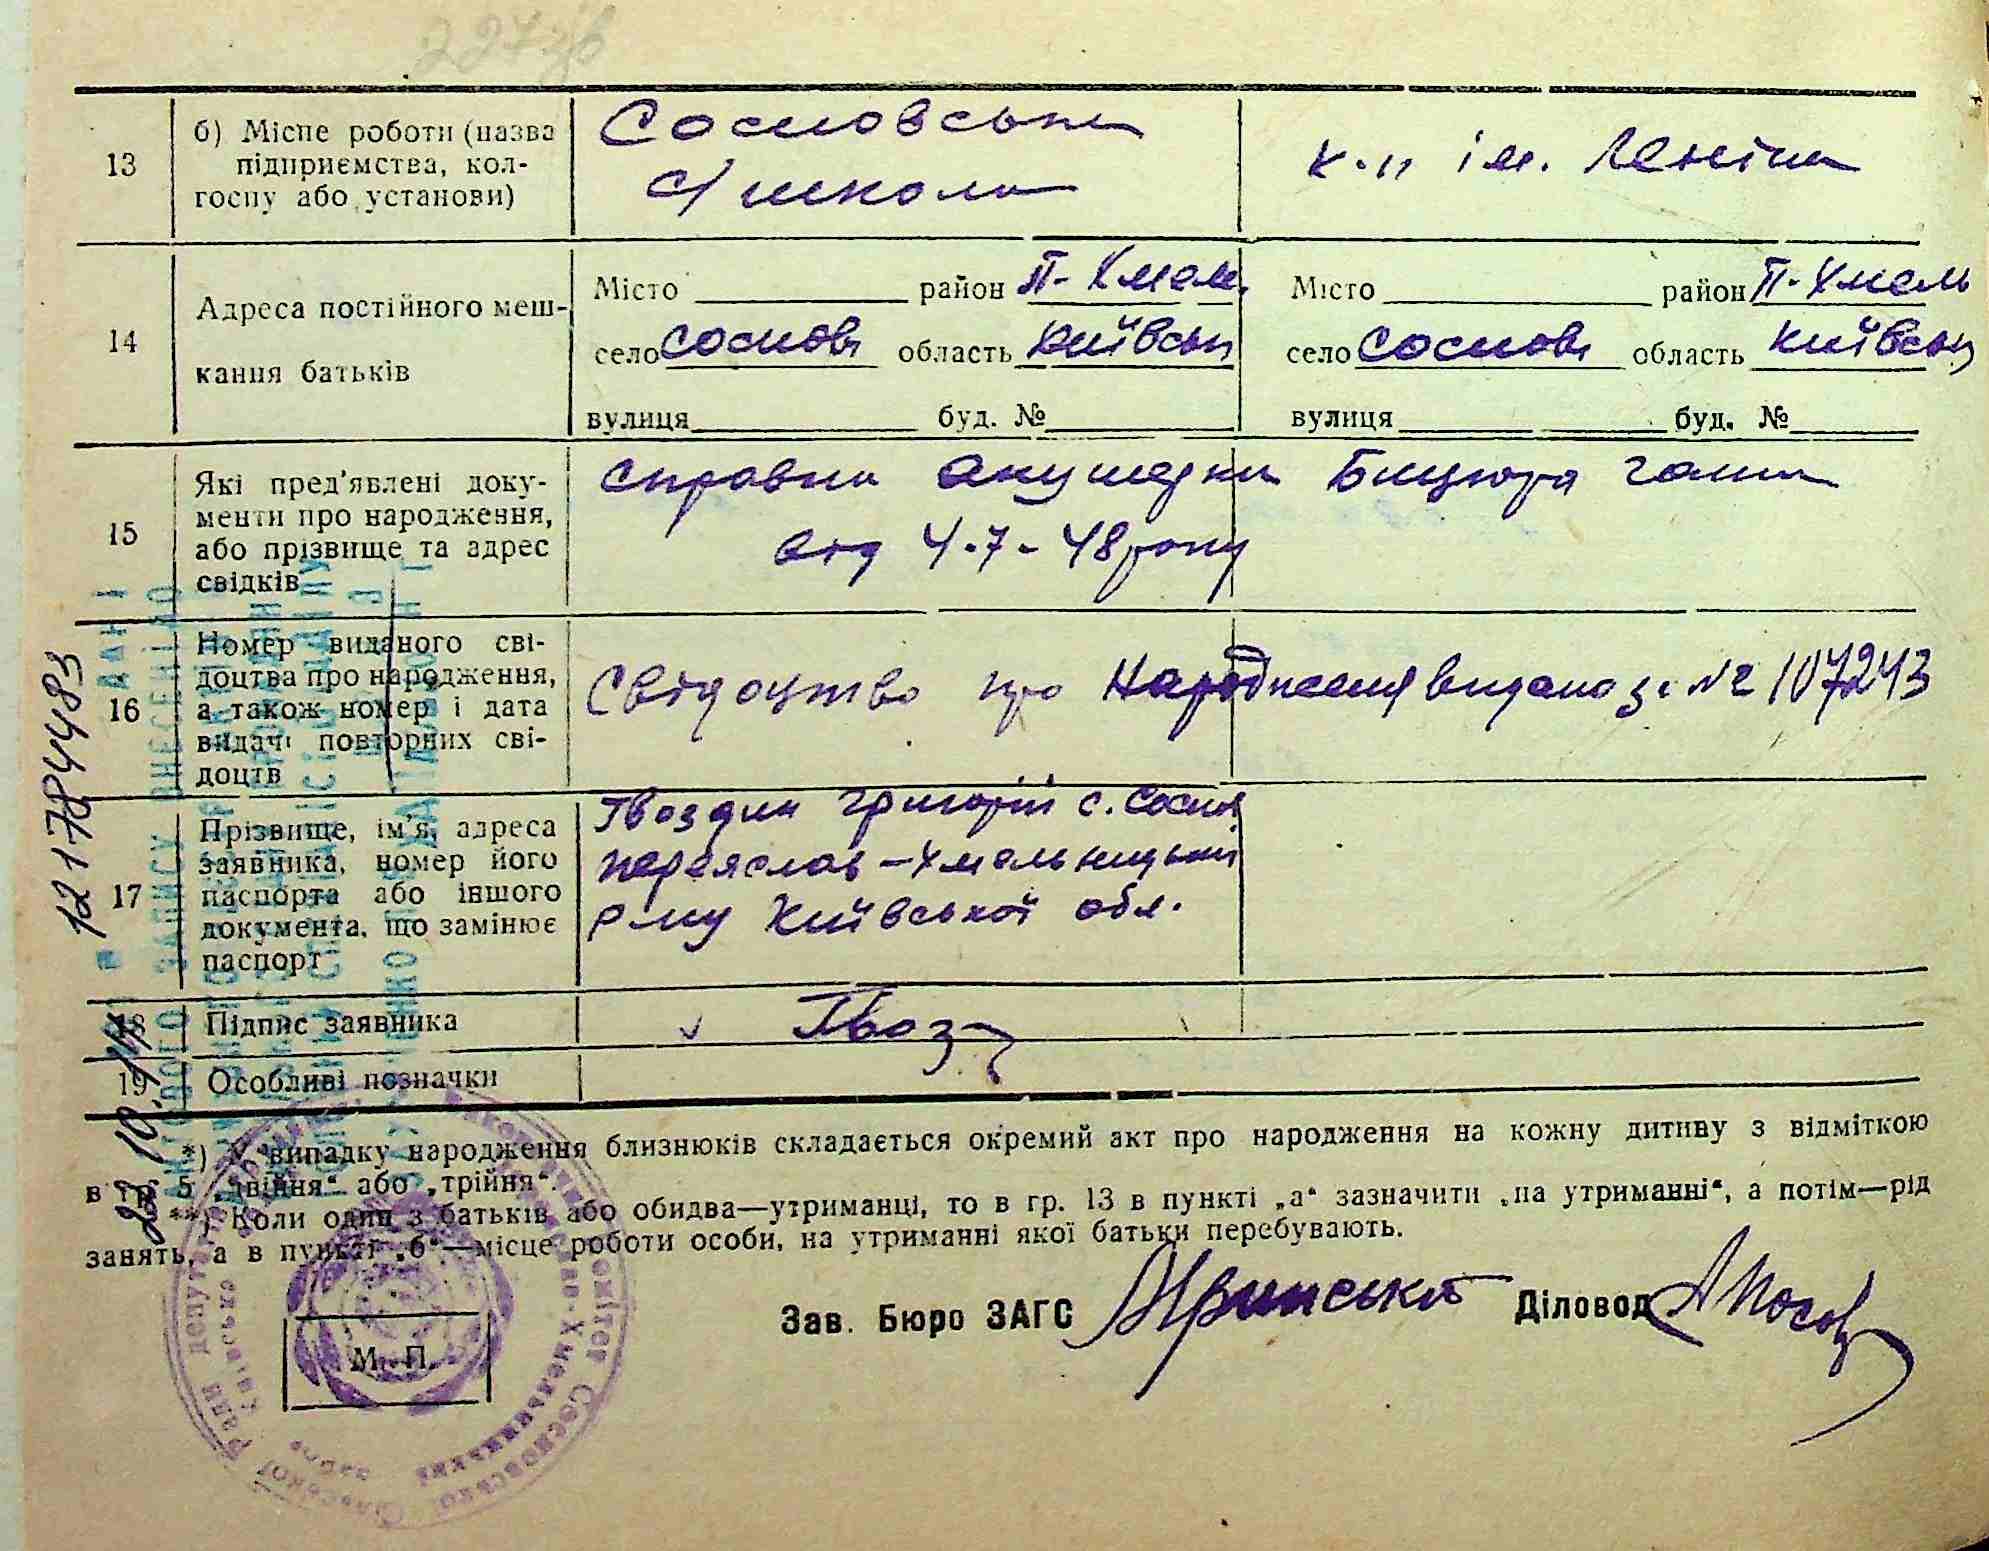 227зв
13
б) Місце роботи (назва
підприємства, кол-
госпу або установи)
Сосновська
с/школа
к-п ім. Леніна
14
Адреса постійного меш-
кання батьків
Місто район П-Хмел.
село Соснова область Київськ
вулиця буд. №
Місто район П-Хмель
село Соснова область Київськ
вулиця буд. №
15
Які пред'явлені доку-
менти про народження,
або прізвище та адрес
свідків
Справка акушерки Бицюра Галина
від 4-7-48 року
16
Номер виданого сві-
доцтва про народження,
а також номер і дата
видачі повторних сві-
доцтв
Свідоцтво про народження видано за № 107243
17
Прізвище, ім'я, адреса
заявника, номер його
паспорта або іншого
документа, що замінює
паспорт
Гвоздик Григорій с. Сосно
Переяслав-Хмельницький
р-ну Київської обл.
18
Підпис заявника
Гвоз
19
Особливі позначки
*) У випадку народження близнюків складається окремий акт про народження на кожну дитину з відміткою
в гр. 5 „двійня“ або „трійня“.
**) Коли один з батьків або обидва—утриманці, то в гр. 13 в пункті „а“ зазначити „на утриманні“, а потім—рід
занять, а в пункті „б“—місце роботи особи, на утриманні якої батьки перебувають.
Зав. Бюро ЗАГС
Діловод
М. П.
1217844483